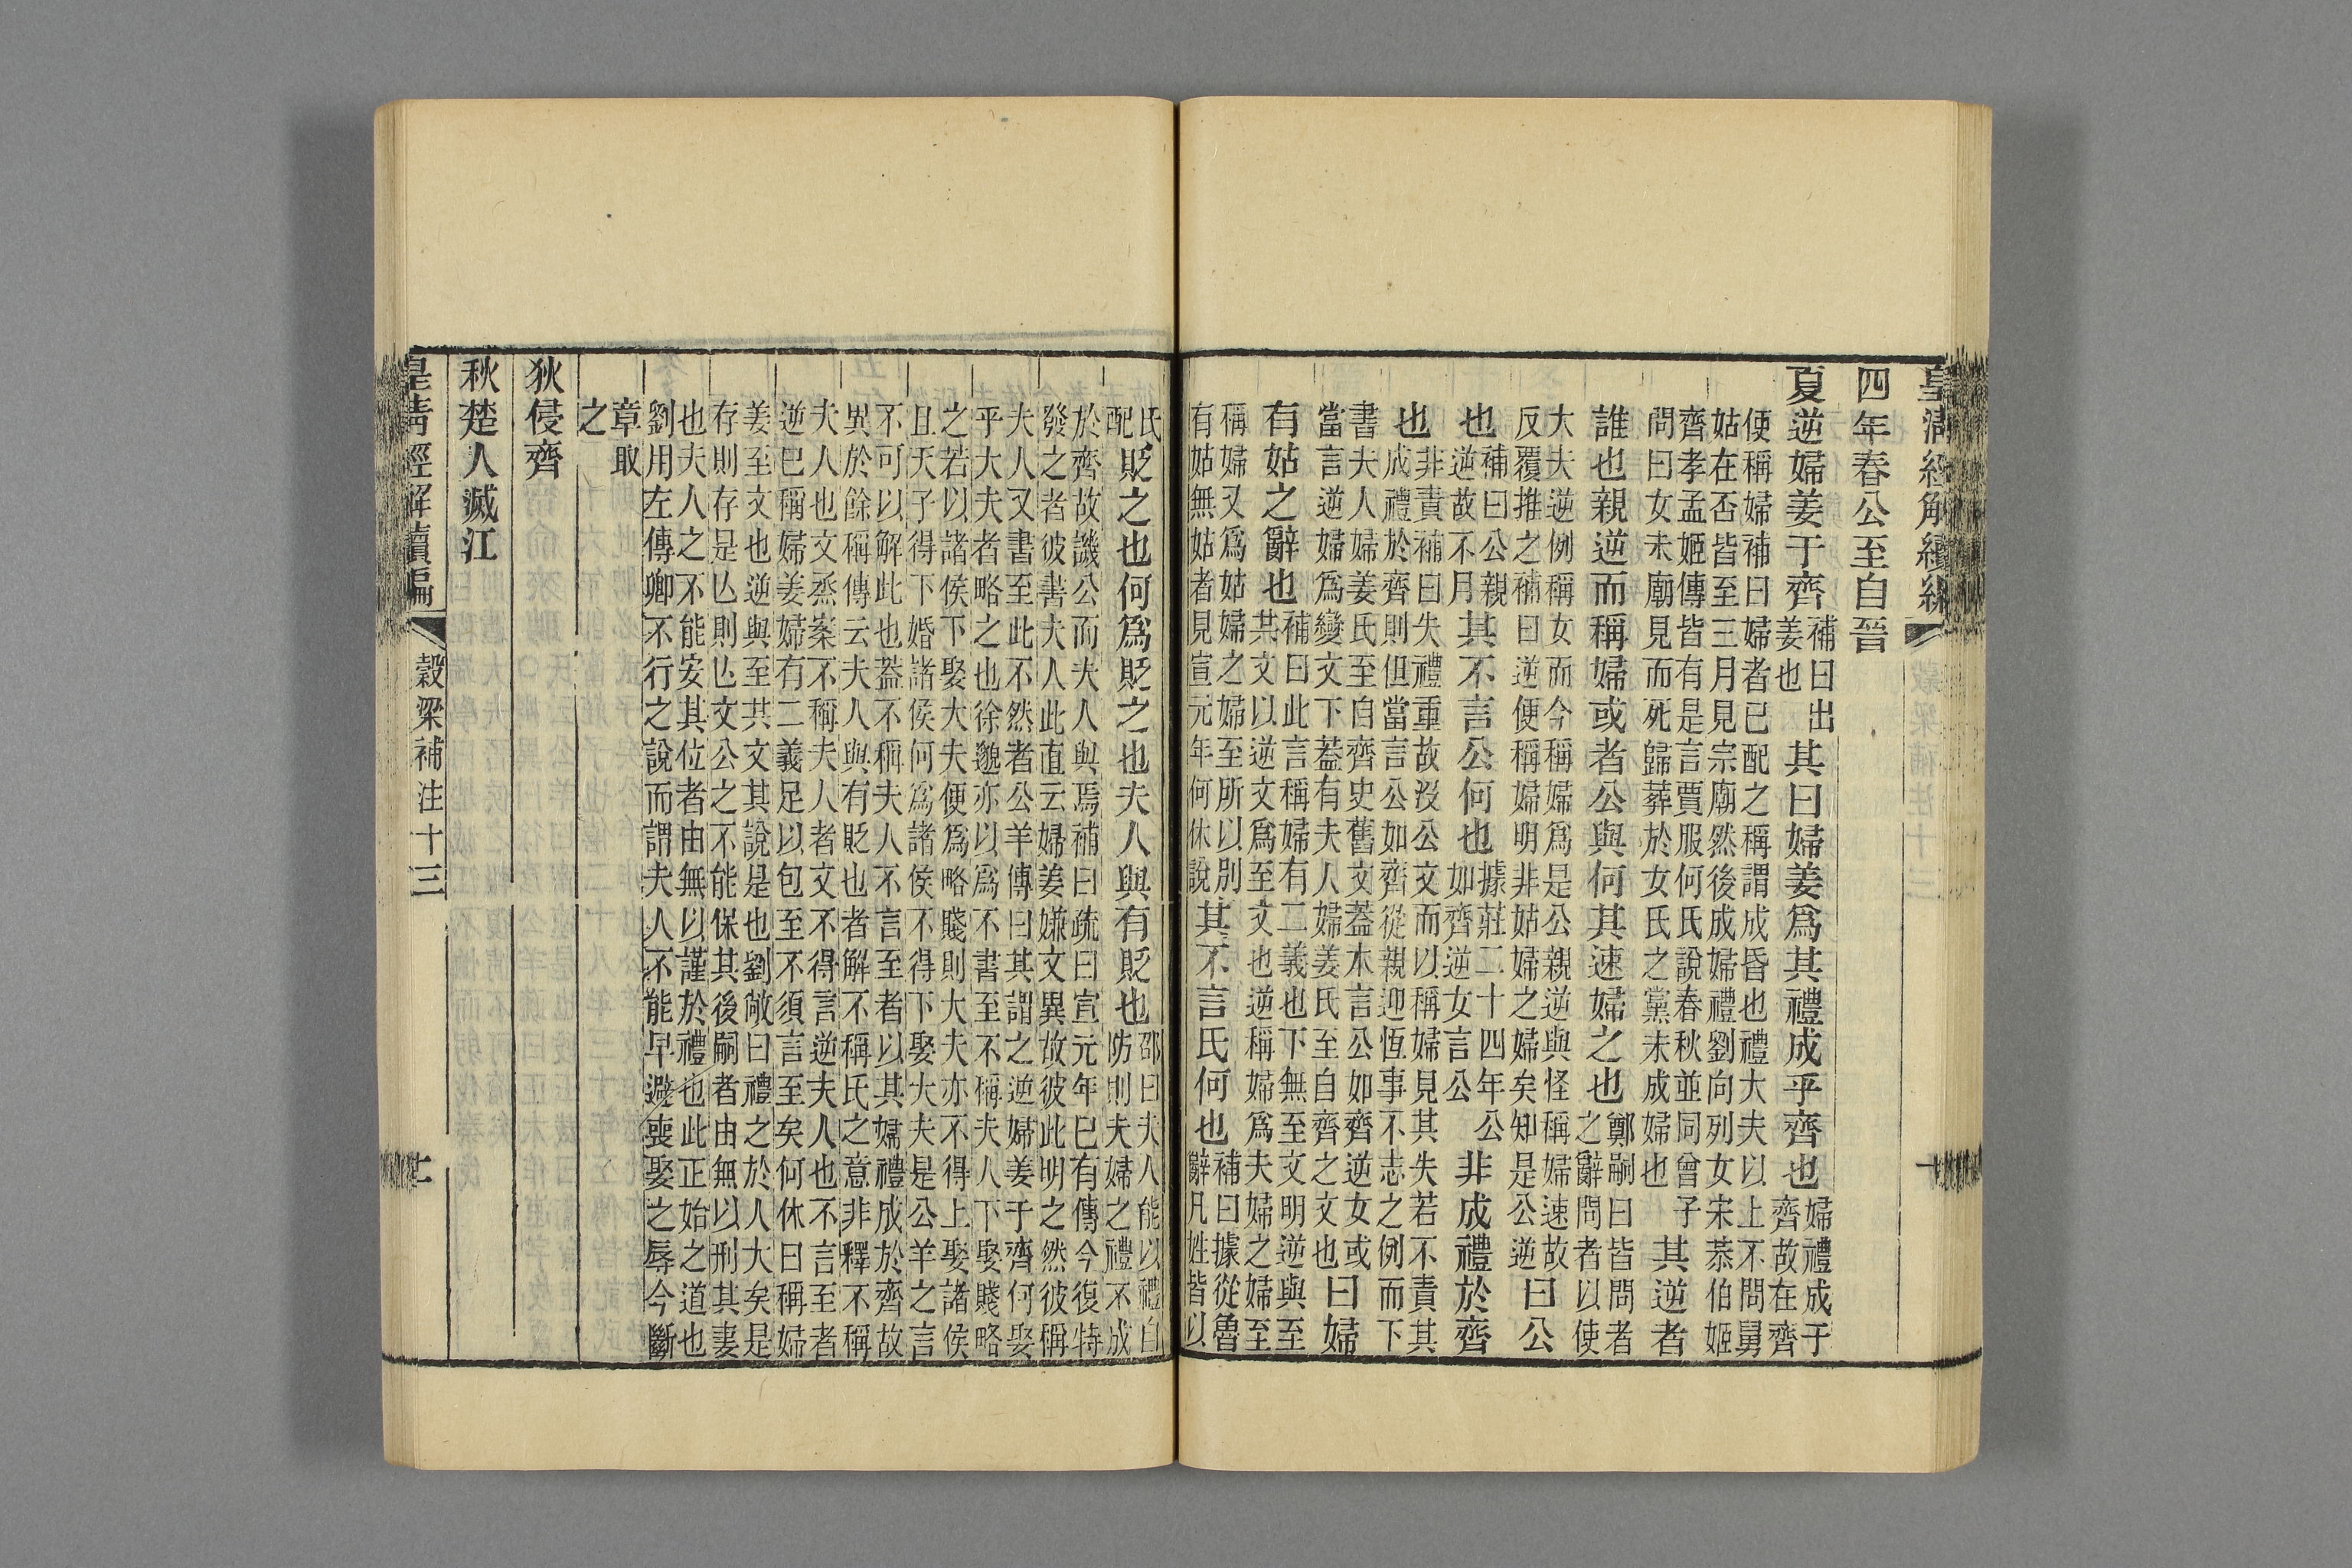 皇清經解續編　穀梁補注十三
四年春公至自晉
夏逆婦姜于齊補曰出姜也其曰婦姜爲其禮成乎齊也婦禮成于齊故在齊
便稱婦補曰婦者已配之稱謂成昏也禮大夫以上不問舅
姑在否皆至三月見宗廟然後成婦禮劉向列女宋恭伯姬
齊孝孟姬傳皆有是言賈服何氏說春秋並同曾子
問曰女未廟見而死歸葬於女氏之黨未成婦也其逆者
誰也親逆而稱婦或者公與何其速婦之也鄭嗣曰皆問者之辭問者以使
大夫逆例稱女而今稱婦爲是公親逆與怪稱婦速故
反覆推之補曰逆便稱婦明非姑婦之婦矣知是公逆曰公
也補曰公親逆故不月其不言公何也據莊二十四年公如齊逆女言公非成禮於齊
也非責補曰失禮重故沒公文而以稱婦見其失若不責其
成禮於齊則但當言公如齊從親迎恆事不志之例而下
書夫人婦姜氏至自齊史舊文葢本言公如齊逆女或
當言逆婦爲變文下葢有夫人婦姜氏至自齊之文也曰婦
有姑之辭也補曰此言稱婦有二義也下無至文明逆與至
其文以逆文爲至文也逆稱婦爲夫婦之婦至
稱婦又爲姑婦之婦至所以別
有姑無姑者見宣元年何休說其不言氏何也補曰據從魯辭凡姓皆以
氏配貶之也何爲貶之也夫人與有貶也邵曰夫人能以禮自防則夫婦之禮不成
於齊故譏公而夫人與焉補曰疏曰宣元年已有傳今復特
發之者彼書夫人此直云婦姜嫌文異故彼此明之然彼稱
夫人又書至此不然者公羊傳曰其謂之逆婦姜于齊何娶
乎大夫者略之也徐邈亦以爲不書至不稱夫人下娶賤略
之若以諸侯下娶大夫便爲略賤則大夫亦不得上娶諸侯
且天子得下婚諸侯何爲諸侯不得下娶大夫是公羊之言
不可以解此也葢不稱夫人不言至者以其婦禮成於齊故
異於餘稱傳云夫人與有貶也者解不稱氏之意非釋不稱
夫人也文烝案不稱夫人者文不得言逆夫人也不言至者
逆已稱婦姜婦有二義足以包至不須言至矣何休曰稱婦
姜至文也逆與至共文其說是也劉敞曰禮之於人大矣是
存則存是亾則亾文公之不能保其後嗣者由無以刑其妻
也夫人之不能安其位者由無以謹於禮也此正始之道也
劉用左傳卿不行之說而謂夫人不能早避喪娶之辱今斷
章取
之
狄侵齊
秋楚人滅江
皇清經解續編　穀梁補注十三